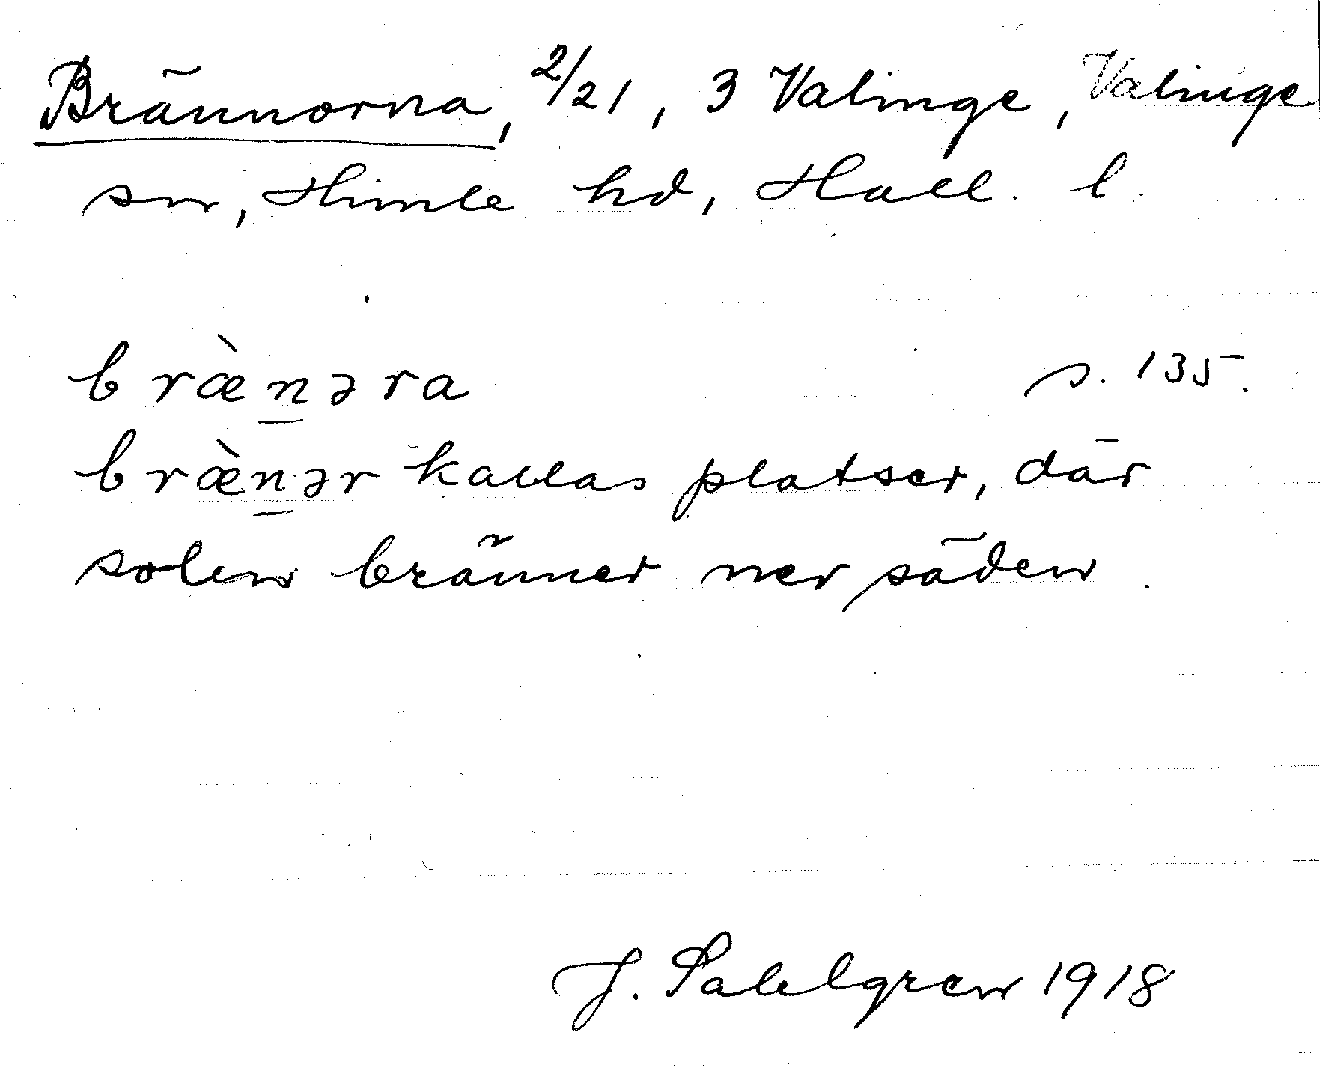 Brännorna, 2/21, 3 Valinge, Valinge
sn, Himle hd, Hall. l.
bræ̀n̲əra s. 135.
bræ̀n̲ər kallas platser, där
solen bränner ner säden.
J. Sahlgren 1918